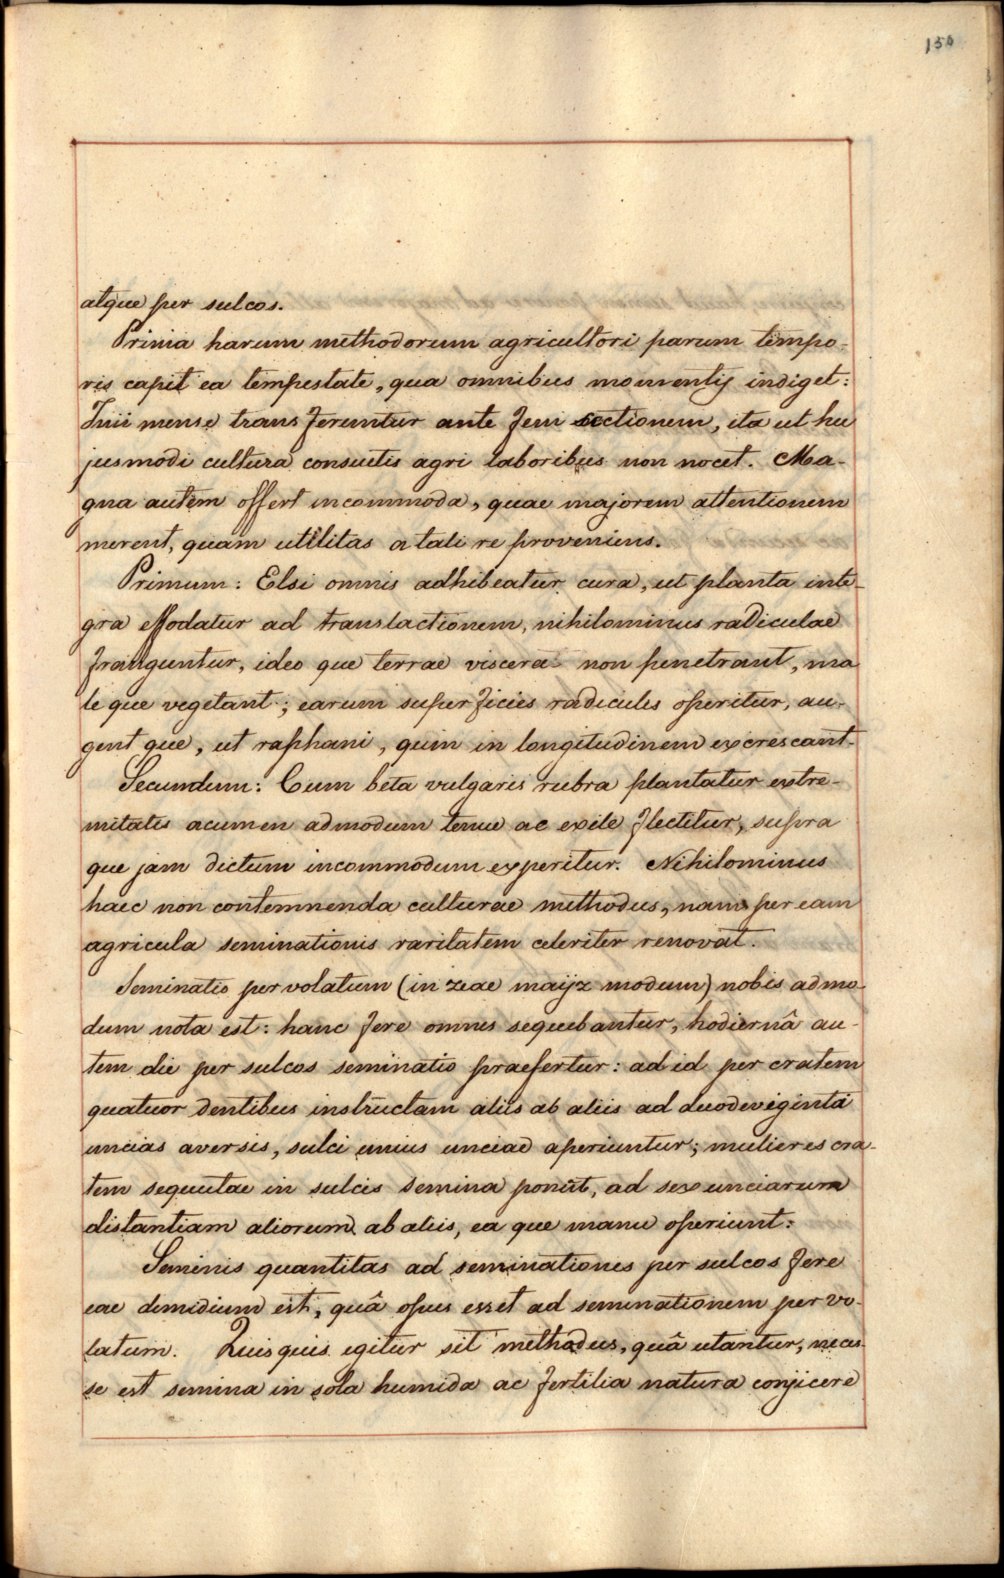 150
atque per sulcos.
Prima harum methodorum agricultori parum tempo-
ris capit ea tempestate, qua omnibus momentis indiget:
Junii mense transferuntur ante fem sectionem, ita ut hu
jusmodi cultura consuetis agri laboribus non nocet. Ma-
gna autem offert incommoda, quae majorem attentionem
merent, quam utilitas a tali re proveniens.
Primum: Etsi omnis adhibeatur cura, ut planta inte-
gra effodatur ad translactionem, nihilominus radiculae
franguntur, ideo que terrae viscera non penetrant, ma
le que vegetant; earum superficies radiculis operitur, au-
gent que, ut raphani, quin in longitudinem excrescant.
Secundum: Cum beta vulgaris rubra plantatur extre-
mitatis acumen admodum tenue ac exile flectitur, supra
que jam dictum incommodum experitur. Nihilominus
haec non contemnenda culturae methodus, nam per eam
agricola seminationis raritatem celeriter renovat.
Seminatio per volatum (in zeae maijz modum) nobis admo-
dum nota est: hanc fere omnes sequebantur, hodiernâ au-
tem die per sulcos seminatio praefertur: ad id per cratem
quatuor dentibus instructam aliis ab aliis ad duodeviginta
uncias aversis, sulci unius unciae aperiuntur; mulieres cra-
tem sequutae in sulcis semina ponūt, ad sex unciarum
distantiam aliorum ab aliis, ea que manu operiunt:
Seminis quantitas ad seminationes per sulcos fere
eae dimidium est, quâ opus esset ad seminationem per vo-
latum. Quisquis igitur sit methodus, quâ utantur, neces-
se est semina in sola humida ac fertilia natura conjicere